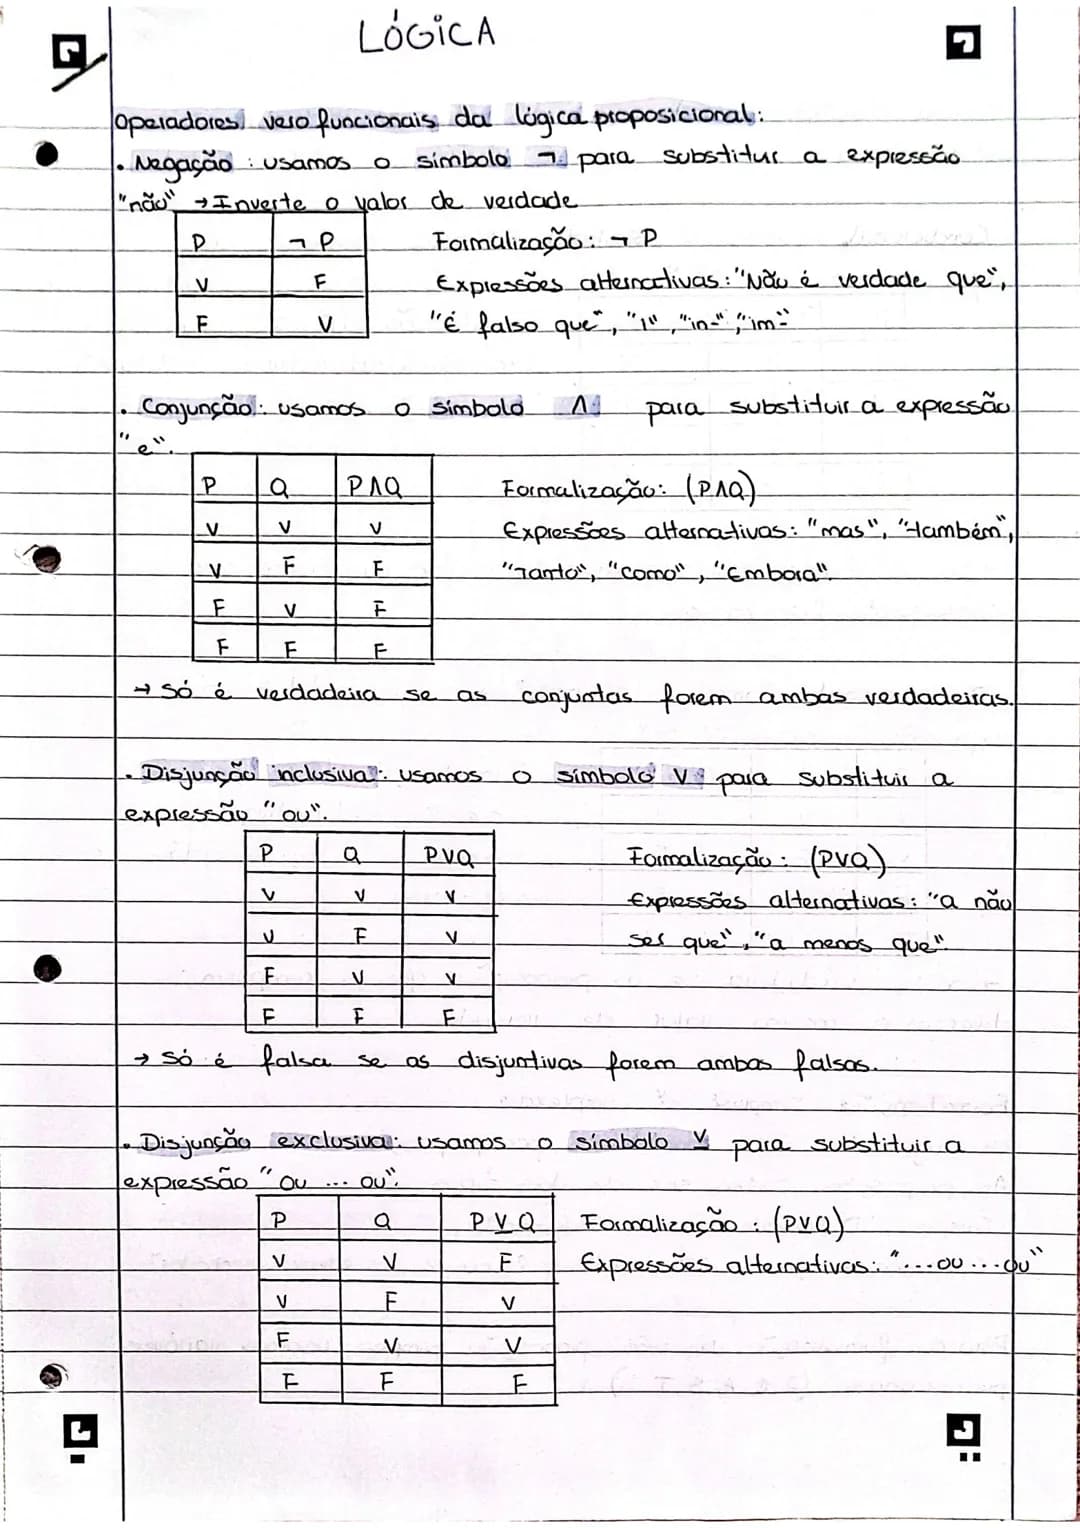 LÓGICA
Operadores vero funcionais da lógica proposicional:
• Negação: usamos o símbolo ¬ para substitur a expressão
"não" → Inverte o valor de verdade
P ¬ P Formalização: ¬ P
V F Expressões alternativas: "Não é verdade que",
F V "É falso que", "i", "in-", "im-"
• Conjunção: usamos o símbolo ∧ para substituir a expressão
"e".
P Q P∧Q Formalização: (P∧Q)
V V V Expressões alternativas: "mas", "também",
V F F "Tanto", "como", "Embora".
F V F
F F F
→ Só é verdadeira se as conjuntas forem ambas verdadeiras.
• Disjunção inclusiva: usamos o símbolo V para substituir a
expressão "ou".
P Q PVQ Formalização: (PVQ)
V V V Expressões alternativas: "a não
V F V ser que", "a menos que".
F V V
F F F
→ Só é falsa se as disjuntivas forem ambas falsas.
• Disjunção exclusiva: usamos o símbolo V̲ para substituir a
expressão "ou ... ou".
P Q P V̲ Q Formalização: (PVQ)
V V F Expressões alternativas: "...ou...ou"
V F V
F V V
F F F